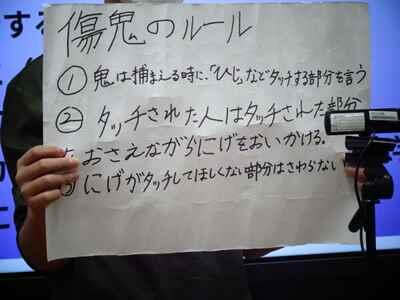 傷鬼のルール
① 鬼は捕まえる時に、「ひじ」などタッチする部分を言う
② タッチされた人はタッチされた部分
をおさえながらにげをおいかける。
③ にげがタッチしてほしくない部分はさわらない